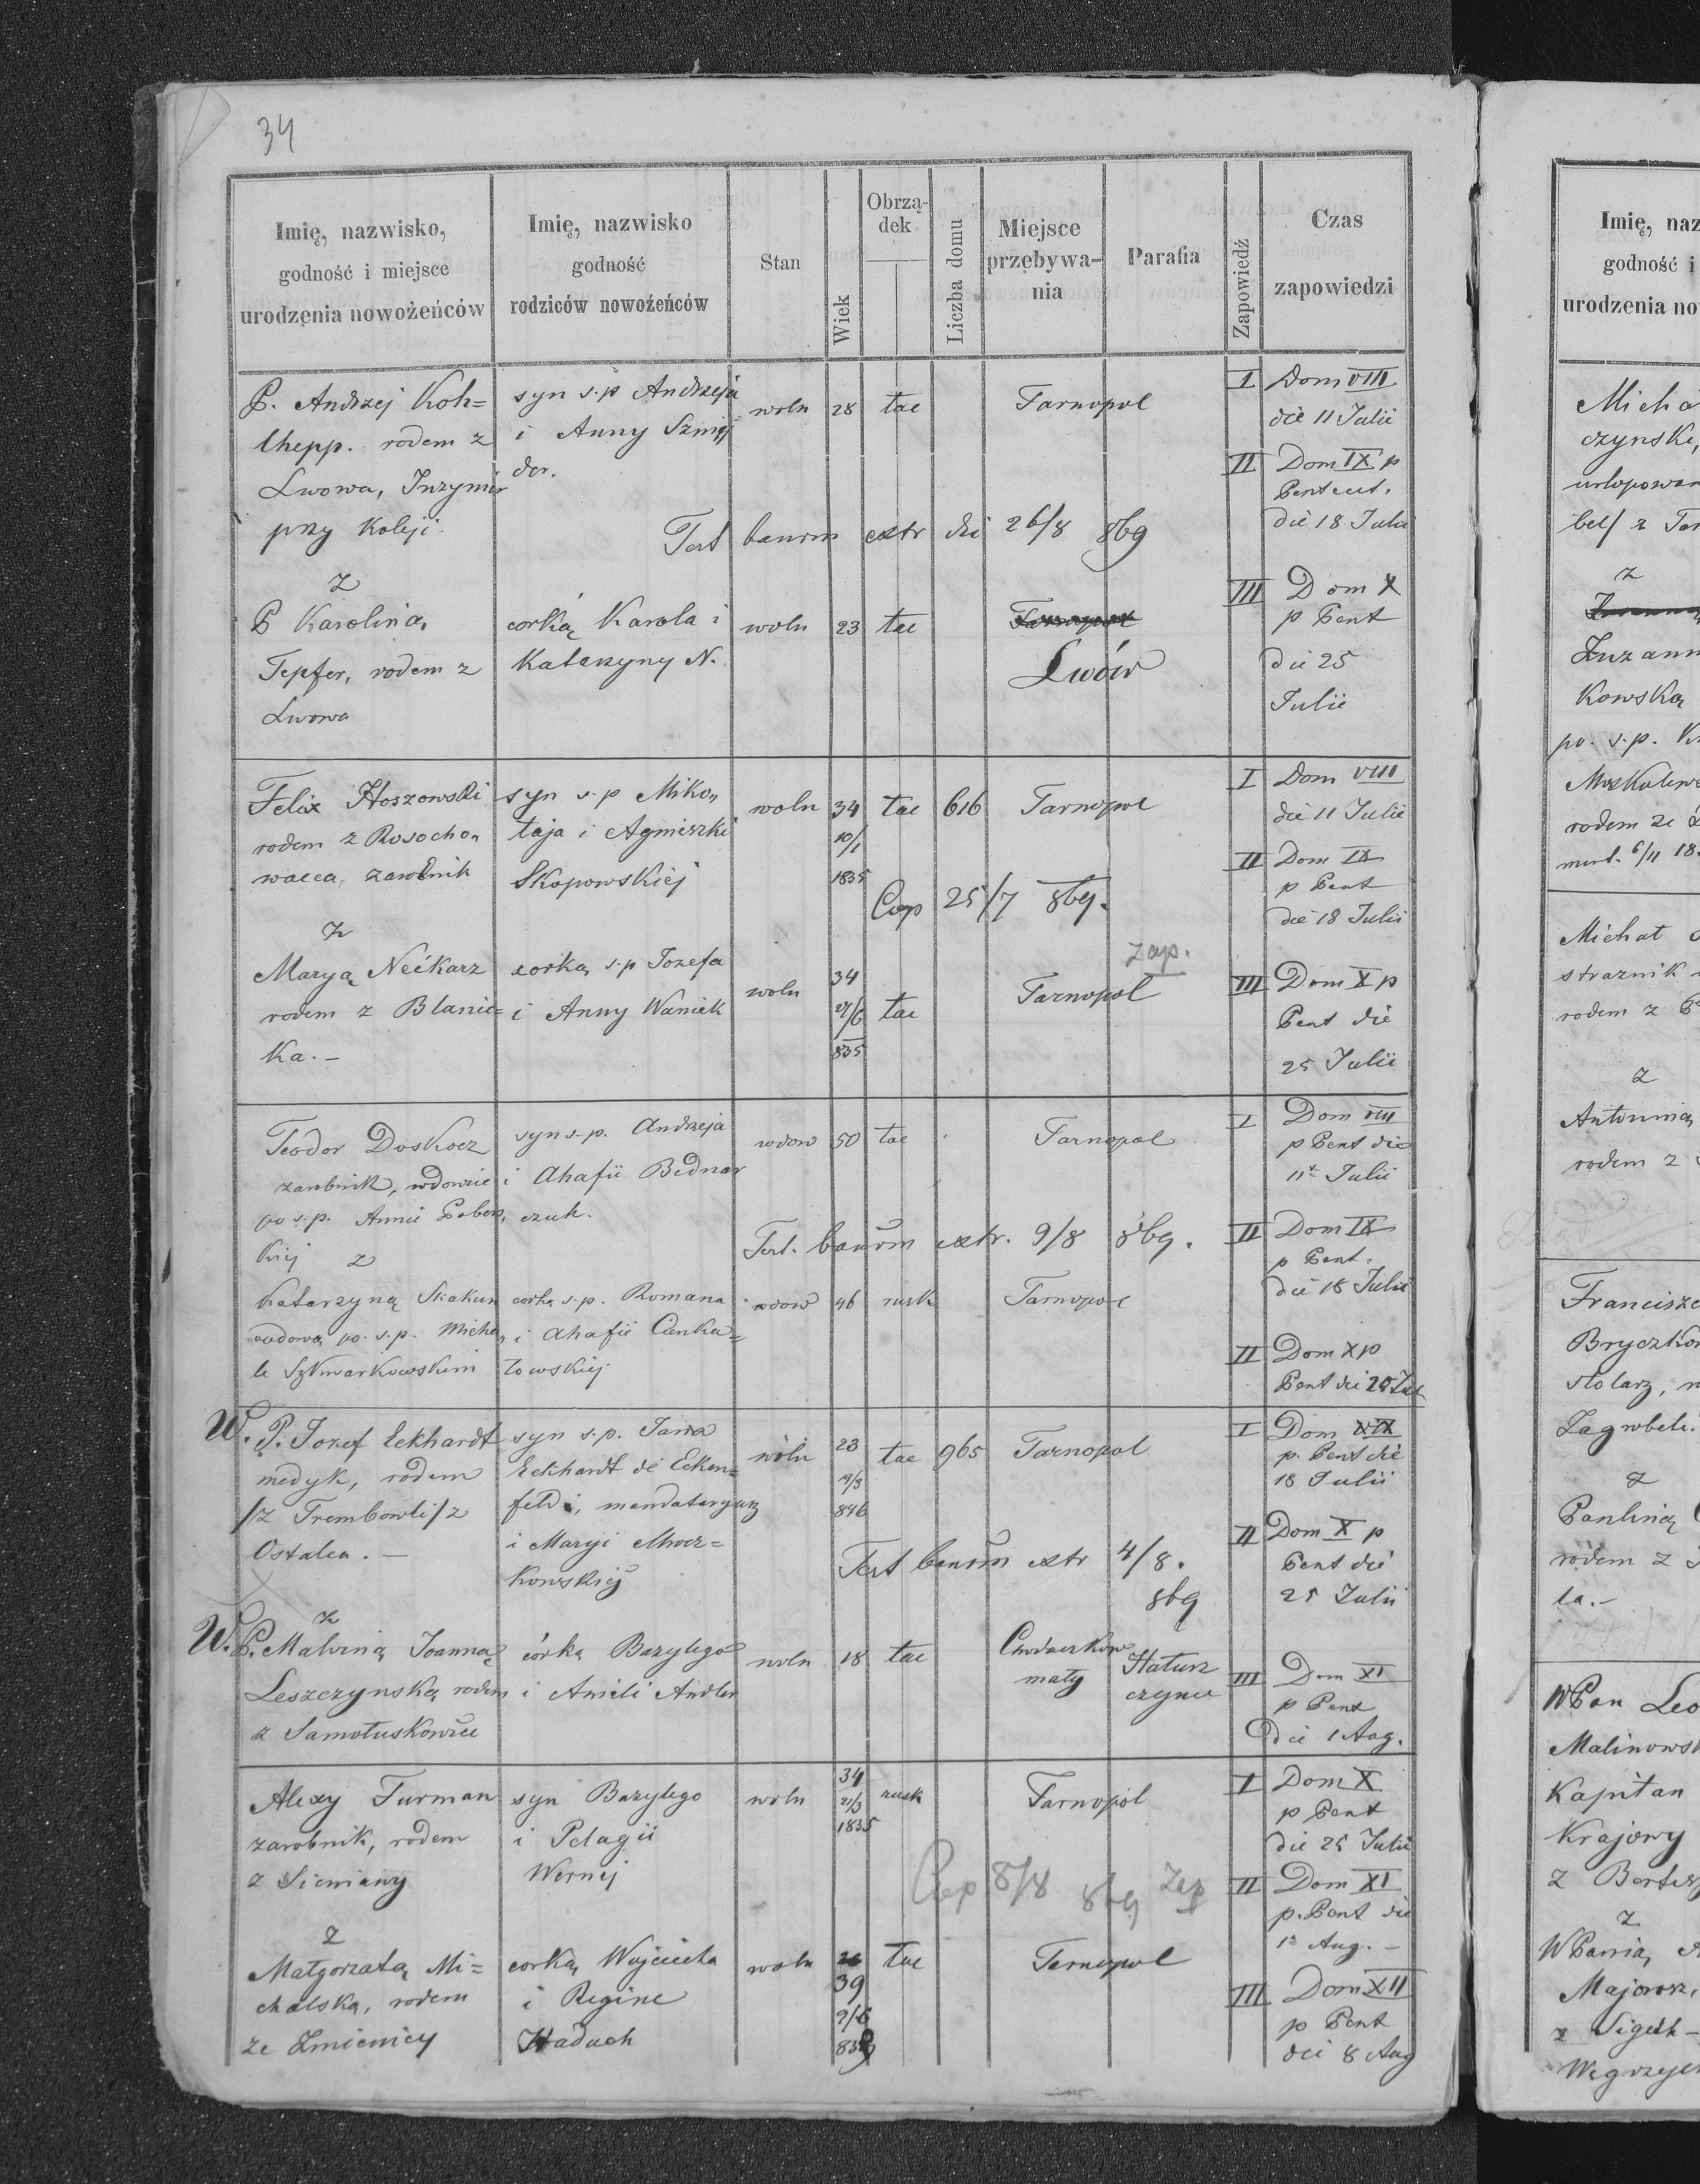 34
Imię, nazwisko,
godność i miejsce
urodzenia nowożeńców
Imię, nazwisko
godność
rodziców nowożeńców
Stan
Wiek
Obrzą-
dek
Liczba domu
Miejsce
przebywa-
nia
Parafia
Zapowiedź
Czas
zapowiedzi
P. Andrzej Koh=
lhepp. rodem z
Lwowa, Inzynier
przy Koleji
syn s.p Andrzeja
i Anny Sznej
der.
woln 28 łac Tarnopol
Test banorm extr die 26/8 869
I Dom VIII
die 11 Julii
II Dom IX p
Pentect.
die 18 Julii
z
P Karolina,
Tepfer, rodem z
Lwowa
corką Karola i
Katarzyny N.
woln 23 łac
Lwów
III Dom X
p Pent
die 25
Julii
Felix Hoszowski
rodem z Rosocho,
wacca, zarobnik
syn s.p Miko,
łaja i Agnieszki
Skopowskiej
woln 34 łac 616 Tarnopol
10/1
1835
Cop 25/7 869.
I Dom VIII
die 11 Julii
II Dom IX
p Pent
die 18 Julii
z
Maryą Nećkarz
rodem z Blanie=
ka.-
corką s.p Jozefa
i Anny Waniek
woln
34
27/6
835
łac Tarnopol
zap.
III Dom X p
Pent die
25 Julii
Teodor Doskocz
zarobnik, wdowiec
po s.p. Annie
kiej z
syn s.p. Andrzeja
i Ahafii Bednar
czuk.
wdow 50 łac Tarnopol
Test. banorm extr. 9/8 869.
I Dom VIII
p Pent die
11 Julii
II Dom IX
p Pent.
die 18 Julii
Katarzyną Skakun
wdową po. s.p. Micha,
le Szkwarkowskim
corką s.p. Romana
i Ahafii Cienka=
łowskiej
wdow 46 rusk Tarnopol
II Dom X p
Pent die 25 Jul
W. P. Jozef Eckhardt
medyk, rodem
/z Trembowli/ z
Ostalca. —
syn s.p. Jana
Eckhardt de Ecken=
feld, mandataryusz
i Maryi Mocz=
kowskiej
woln 23 łac 965 Tarnopol
19/3
846
Test banorm extr 4/8.
869
I Dom IX
p. Pent die
18 Julii
II Dom X p
Pent die
25 Julii
z
W. P. Malviną Joanną
Leszczynską rodem
z Samołuskowiec
córką Bazylego
i Anieli Andler
woln 18 łac
Chodaczkow
mały
III Dom XI
p Pent
die 1 Aug.
Alexy Furman
zarobnik, rodem
z Sieniawy
syn Bazylego
i Pelagii
Wernej
woln
34
21/3
1835
rusk Tarnopol
Cop 8/8 869 Zap
I Dom X
p Pent
die 25 Julii
II Dom XI
p. Pent die
1 Aug. -
z
Małgorzatą Mi=
chalską, rodem
ze Zmienicy
corką Wojciecha
i Regine
Haduch
woln
39
9/6
łac Tarnopol
III Dom XII
p Pent
die 8 Aug
Imię, naz
godność i
urodzenia no
Micha
czynski,
urlopowan
z
Zuzann
kowską
po. s.p.
rodem ze
Michał
straznik
rodem z
z
Antonina,
rodem z
Francisze
Bryczko
stolarz,
Zagrobele.
z
Pauliną
rodem z
la.-
WPan Leo
Malinowsk
Kapitan
Krajowy
z
z
WPania,
Major
z Sigeth -
Węgrzech